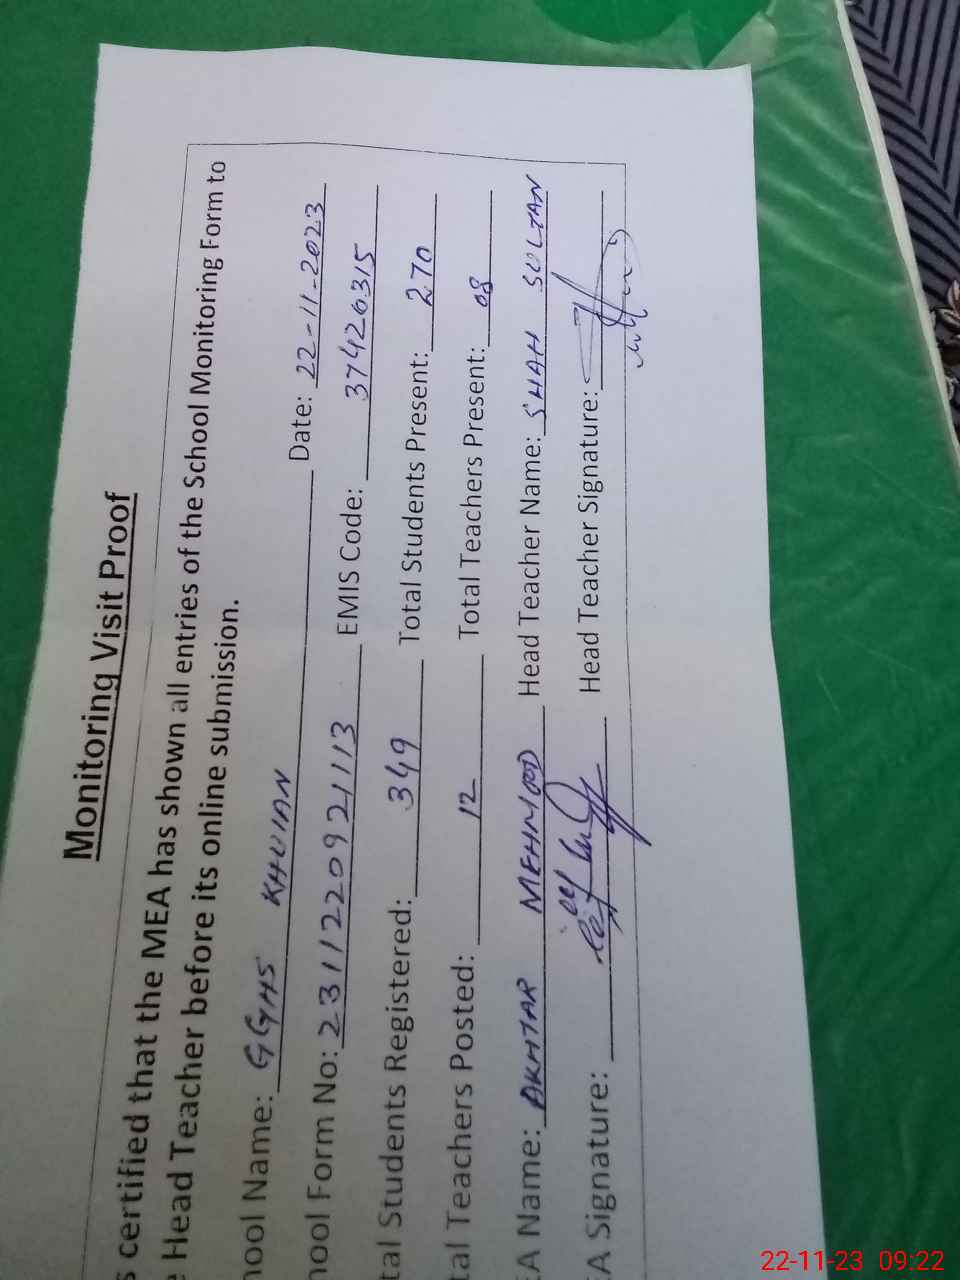 Monitoring Visit Proof
s certified that the MEA has shown all entries of the School Monitoring Form to
e Head Teacher before its online submission.
hool Name: GGHS KHUIAN Date: 22-11-2023
hool Form No: 2311220921113 EMIS Code: 37420315
tal Students Registered: 349 Total Students Present: 270
tal Teachers Posted: 12 Total Teachers Present: 08
EA Name: AKHTAR MEHMOOD Head Teacher Name: SHAH SULTAN
EA Signature: Head Teacher Signature:
22-11-23 09:22